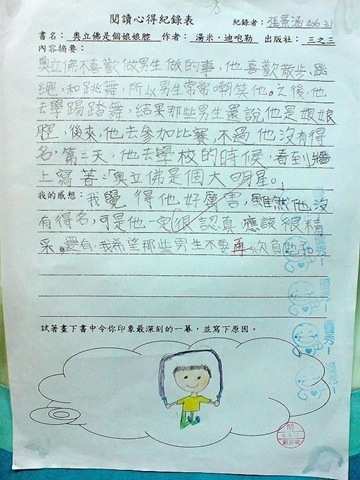 閱讀心得紀錄表 紀錄者：張景涵 406 31
書名： 奧立佛是個娘娘腔 作者： 湯米．迪咆勒 出版社： 三之三
內容摘要：
奧立佛不喜歡做男生做的事，他喜歡散步、跳
繩，和跳舞，所以男生常常嘲笑他。之後，他
去學踢踏舞，結果那些男生還說他是娘娘
腔，後來，他去參加比賽，不過他沒有得
名。第二天，他去學校的時候，看到牆
上寫著：「奧立佛是個大明星。」
我的感想：我覺得他好厲害，雖然他沒
有得名，可是他一定很認真，應該很精
采。還有，我希望那些男生不要再一次
試著畫下書中令你印象最深刻的一幕，並寫下原因。
優秀
優秀